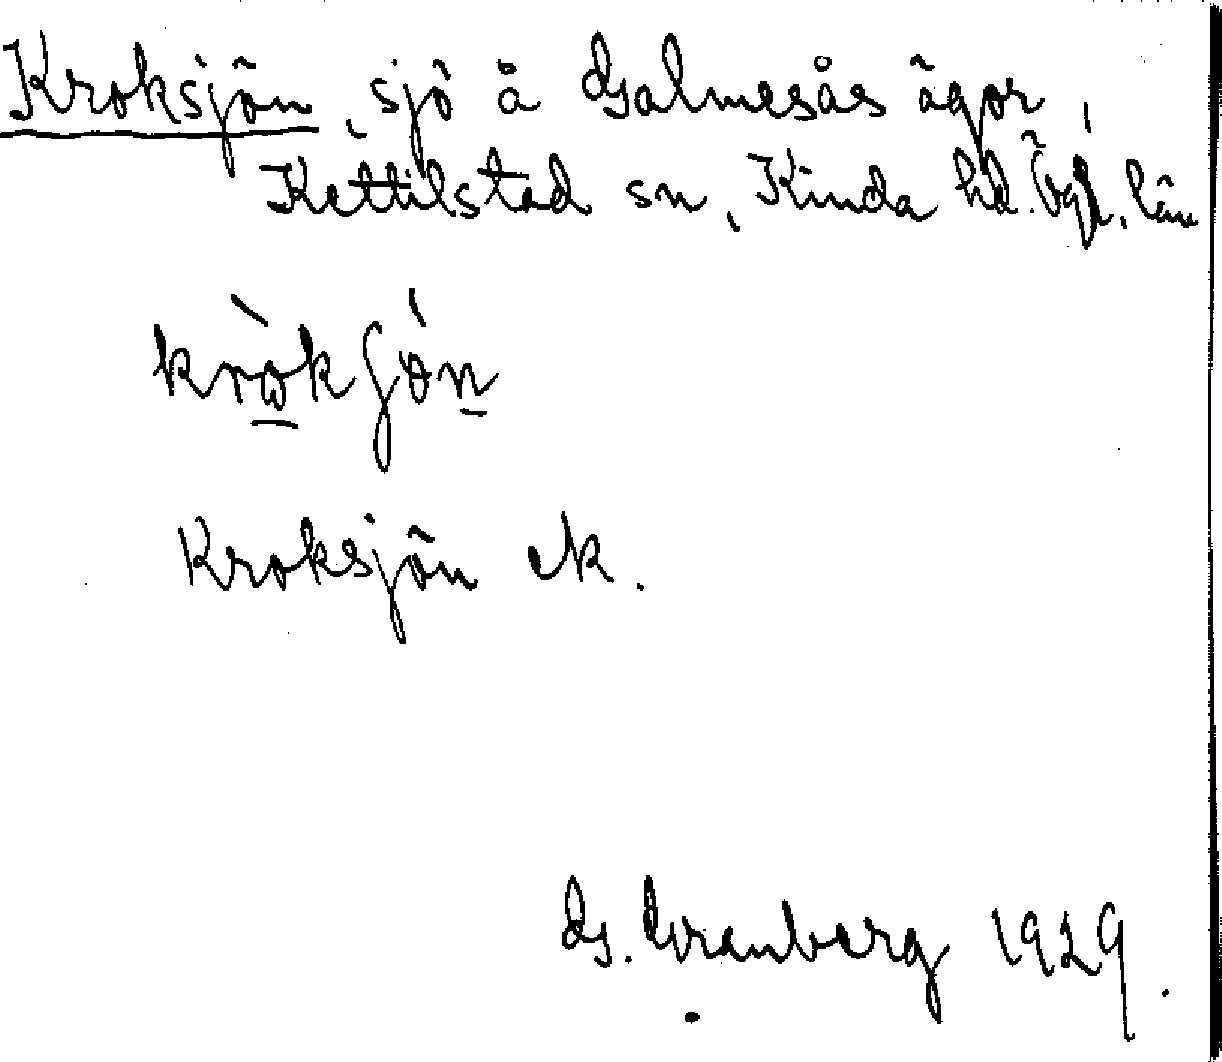 Kroksjön, sjö å Galmesås ägor,
Kettilstad sn, Kinda hd. Ögl. län
krò̲kʃó̀n̲
Kroksjön ek.
G. Granberg 1929.